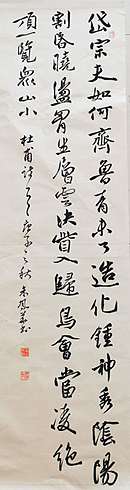 岱宗夫如何齊魯青未了造化鍾神秀陰陽
割昏曉盪胷生層雲決眥入歸鳥會當凌絕
頂一覽衆山小
杜甫詩 庚子之秋